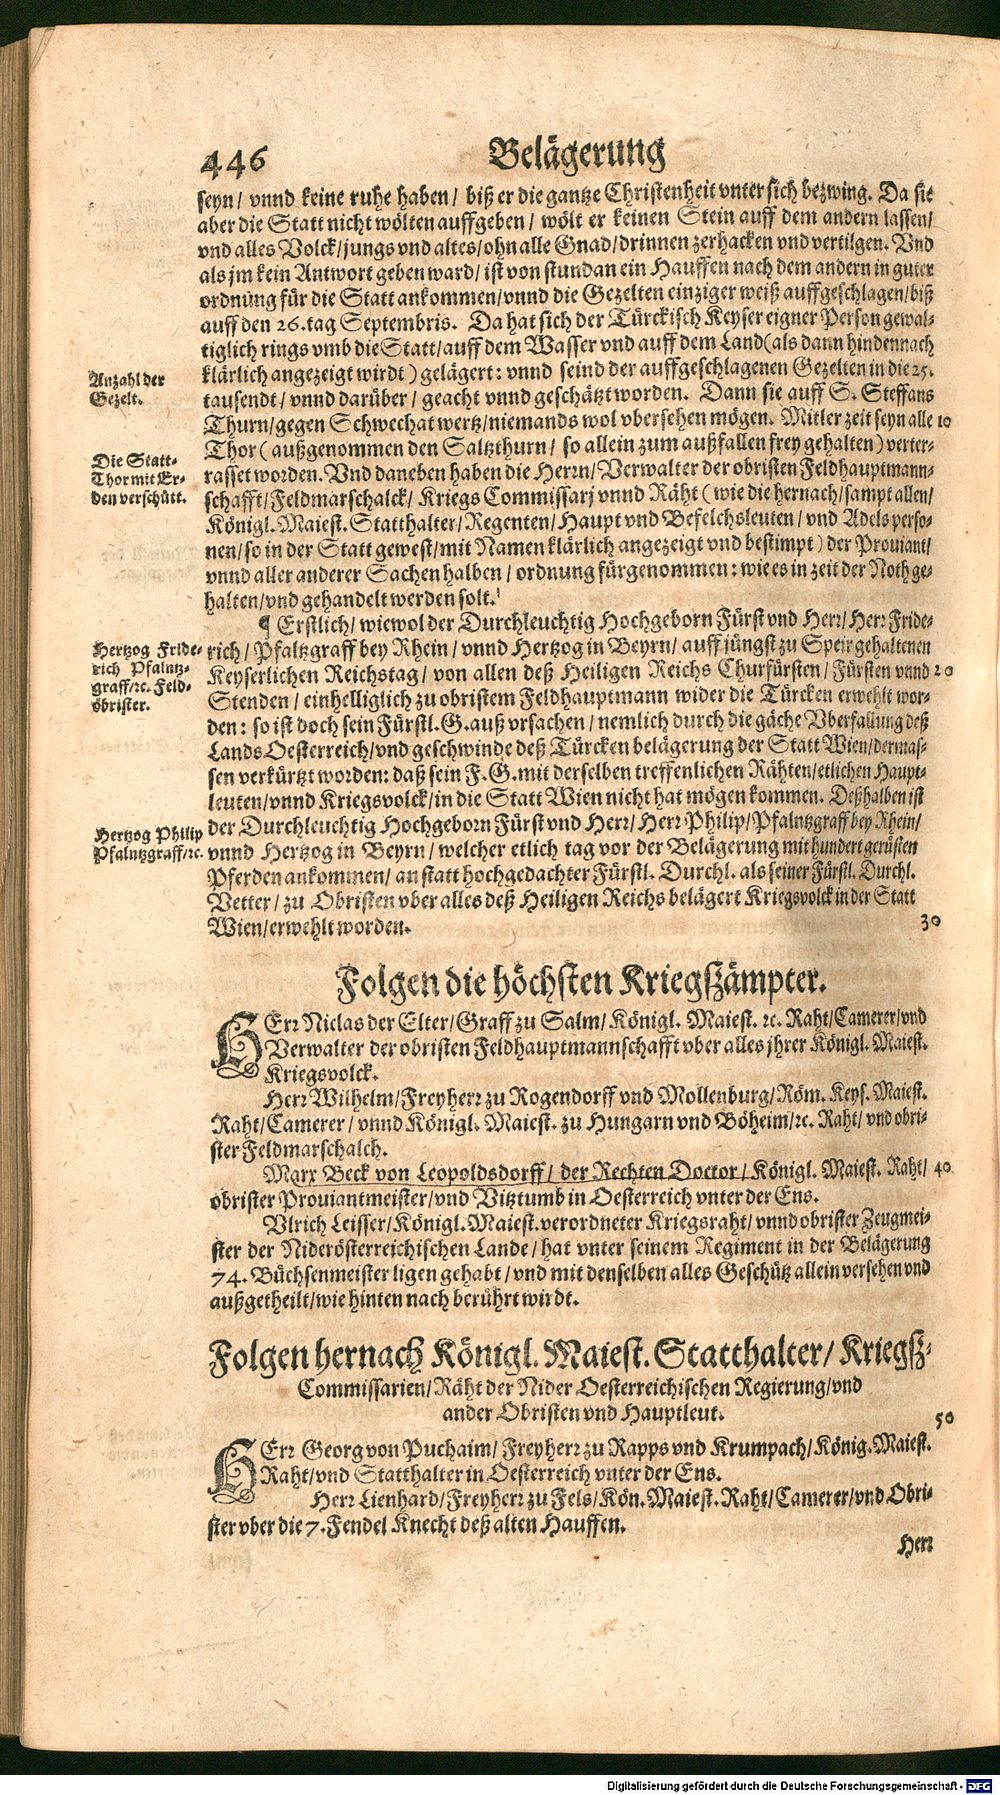 446 Belägerung
seyn/ vnnd keine ruhe haben/ biß er die gantze Christenheit vnter sich bezwing. Da sie
aber die Statt nicht wölten auffgeben/ wölt er keinen Stein auff dem andern lassen/
vnd alles Volck/ jungs vnd altes/ ohn alle Gnad/ drinnen zerhacken vnd vertilgen. Vnd
als jm kein Antwort geben ward/ ist von stundan ein Hauffen nach dem andern in guter
ordnung für die Statt ankommen/ vnnd die Gezelten einziger weiß auffgeschlagen/ biß
auff den 26. tag Septembris. Da hat sich der Türckisch Keyser eigner Person gewal-
tiglich rings vmb die Statt/ auff dem Wasser vnd auff dem Land (als dann hindennach
Anzahl der
Gezelt.
klärlich angezeigt wirdt) gelägert: vnnd seind der auffgeschlagenen Gezelten in die 25.
tausendt/ vnnd darüber/ geacht vnnd geschätzt worden. Dann sie auff S. Steffans
Thurn/ gegen Schwechat wertz/ niemands wol vbersehen mögen. Mitler zeit seyn alle 10
Thor (außgenommen den Saltzthurn/ so allein zum außfallen frey gehalten) verter-
Die Statt-
Thor mit Er-
den verschütt.
rasset worden. Vnd daneben haben die Herrn/ Verwalter der obristen Feldhauptmann-
schafft/ Feldmarschalck/ Kriegs Commissarj vnnd Räht (wie die hernach/ sampt allen/
Königl. Maiest. Statthalter/ Regenten/ Haupt vnd Befelchsleuten/ vnd Adels perso-
nen/ so in der Statt gewest/ mit Namen klärlich angezeigt vnd bestimpt) der Prouiant/
vnnd aller anderer Sachen halben/ ordnung fürgenommen: wie es in zeit der Noth ge-
halten/ vnd gehandelt werden solt.
¶ Erstlich/ wiewol der Durchleuchtig Hochgeborn Fürst vnd Herr/ Herr Fride-
Hertzog Fride-
rich Pfaltz-
graff/ ꝛc. Feld-
obrister.
rich/ Pfaltzgraff bey Rhein/ vnnd Hertzog in Beyrn/ auff jüngst zu Speir gehaltenen
Keyserlichen Reichstag/ von allen deß Heiligen Reichs Churfürsten/ Fürsten vnnd 20
Stenden/ einhelliglich zu obristem Feldhauptmann wider die Türcken erwehlt wor-
den: so ist doch sein Fürstl. G. auß vrsachen/ nemlich durch die gäche Vberfallung deß
Lands Oesterreich/ vnd geschwinde deß Türcken belägerung der Statt Wien/ dermas-
sen verkürtzt worden: daß sein F. G. mit derselben treffenlichen Rähten/ etlichen Haupt-
leuten/ vnnd Kriegsvolck/ in die Statt Wien nicht hat mögen kommen. Deßhalben ist
Hertzog Philip
Pfalntzgraff/ ꝛc.
der Durchleuchtig Hochgeborn Fürst vnd Herr/ Herr Philip/ Pfalntzgraff bey Rhein/
vnnd Hertzog in Beyrn/ welcher etlich tag vor der Belägerung mit hundert gerüsten
Pferden ankommen/ an statt hochgedachter Fürstl. Durchl. als seiner Fürstl. Durchl.
Vetter/ zu Obristen vber alles deß Heiligen Reichs belägert Kriegsvolck in der Statt
Wien/ erwehlt worden. 30
Folgen die höchsten Kriegßämpter.
HErr Niclas der Elter/ Graff zu Salm/ Königl. Maiest. ꝛc. Raht/ Camerer/ vnd
Verwalter der obristen Feldhauptmannschafft vber alles jhrer Königl. Maiest.
Kriegsvolck.
Herr Wilhelm/ Freyherr zu Rogendorff vnd Mollenburg/ Röm. Keys. Maiest.
Raht/ Camerer/ vnnd Königl. Maiest. zu Hungarn vnd Böheim/ ꝛc. Raht/ vnd obri-
ster Feldmarschalch.
Marx Beck von Leopoldsdorff/ der Rechten Doctor/ Königl. Maiest. Raht/ 40
obrister Prouiantmeister/ vnd Vitztumb in Oesterreich vnter der Ens.
Vlrich Leisser/ Königl. Maiest. verordneter Kriegsraht/ vnnd obrister Zeugmei-
ster der Niderösterreichischen Lande/ hat vnter seinem Regiment in der Belägerung
74. Büchsenmeister ligen gehabt/ vnd mit denselben alles Geschütz allein versehen vnd
außgetheilt/ wie hinten nach berührt wirdt.
Folgen hernach Königl. Maiest. Statthalter/ Kriegß-
Commissarien/ Räht der Nider Oesterreichischen Regierung/ vnd
ander Obristen vnd Hauptleut.
50
HErr Georg von Puchaim/ Freyherr zu Rapps vnd Krumpach/ König. Maiest.
Raht/ vnd Statthalter in Oesterreich vnter der Ens.
Herr Lienhard/ Freyherr zu Fels/ Kön. Maiest. Raht/ Camerer/ vnd Obri-
ster vber die 7. Fendel Knecht deß alten Hauffen.
Herr
Digitalisierung gefördert durch die Deutsche Forschungsgemeinschaft - DFG